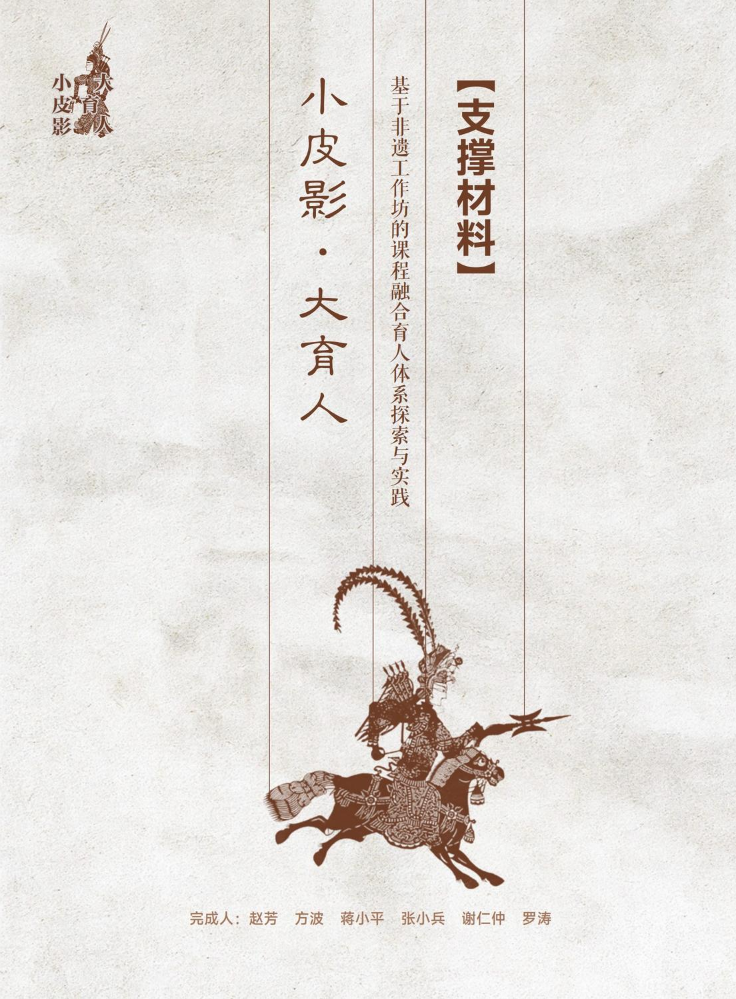 小皮影
大育人
【支撑材料】
基于非遗工作坊的课程融合育人体系探索与实践
小皮影·大育人
完成人：赵芳 方波 蒋小平 张小兵 谢仁仲 罗涛